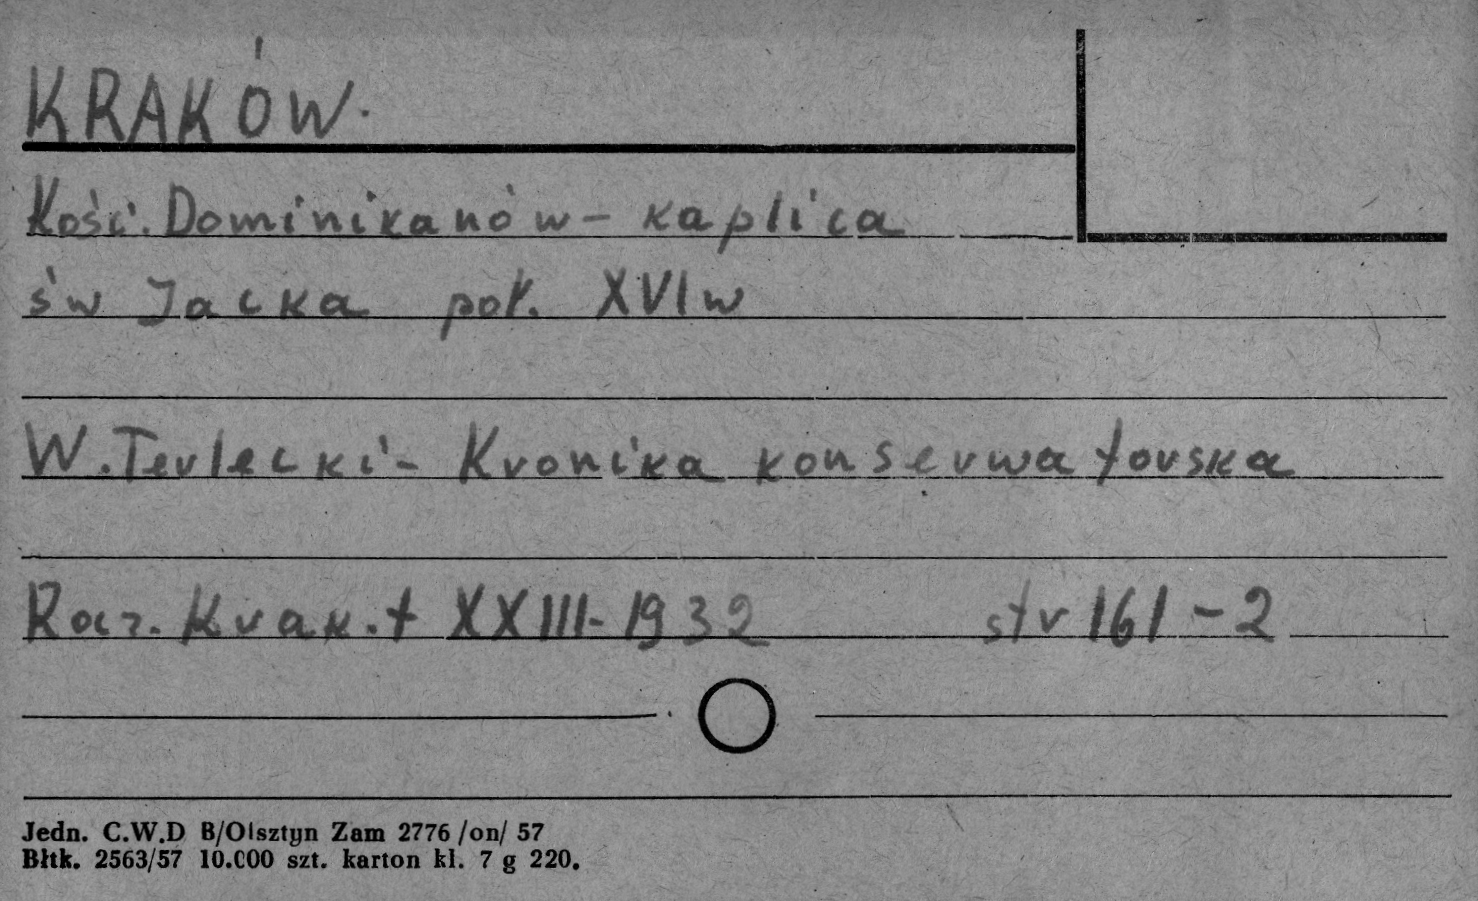 KRAKÓW.
Kość. Dominikanów - kaplica
św Jacka poł. XVI w
W. Terlecki - Kronika konserwatorska
Rocz. Krak. t XXIII - 1932 str 161 - 2
Jedn. C.W.D B/Olsztyn Zam 2776 /on/ 57
Błtk. 2563/57 10.000 szt. karton kl. 7 g 220.